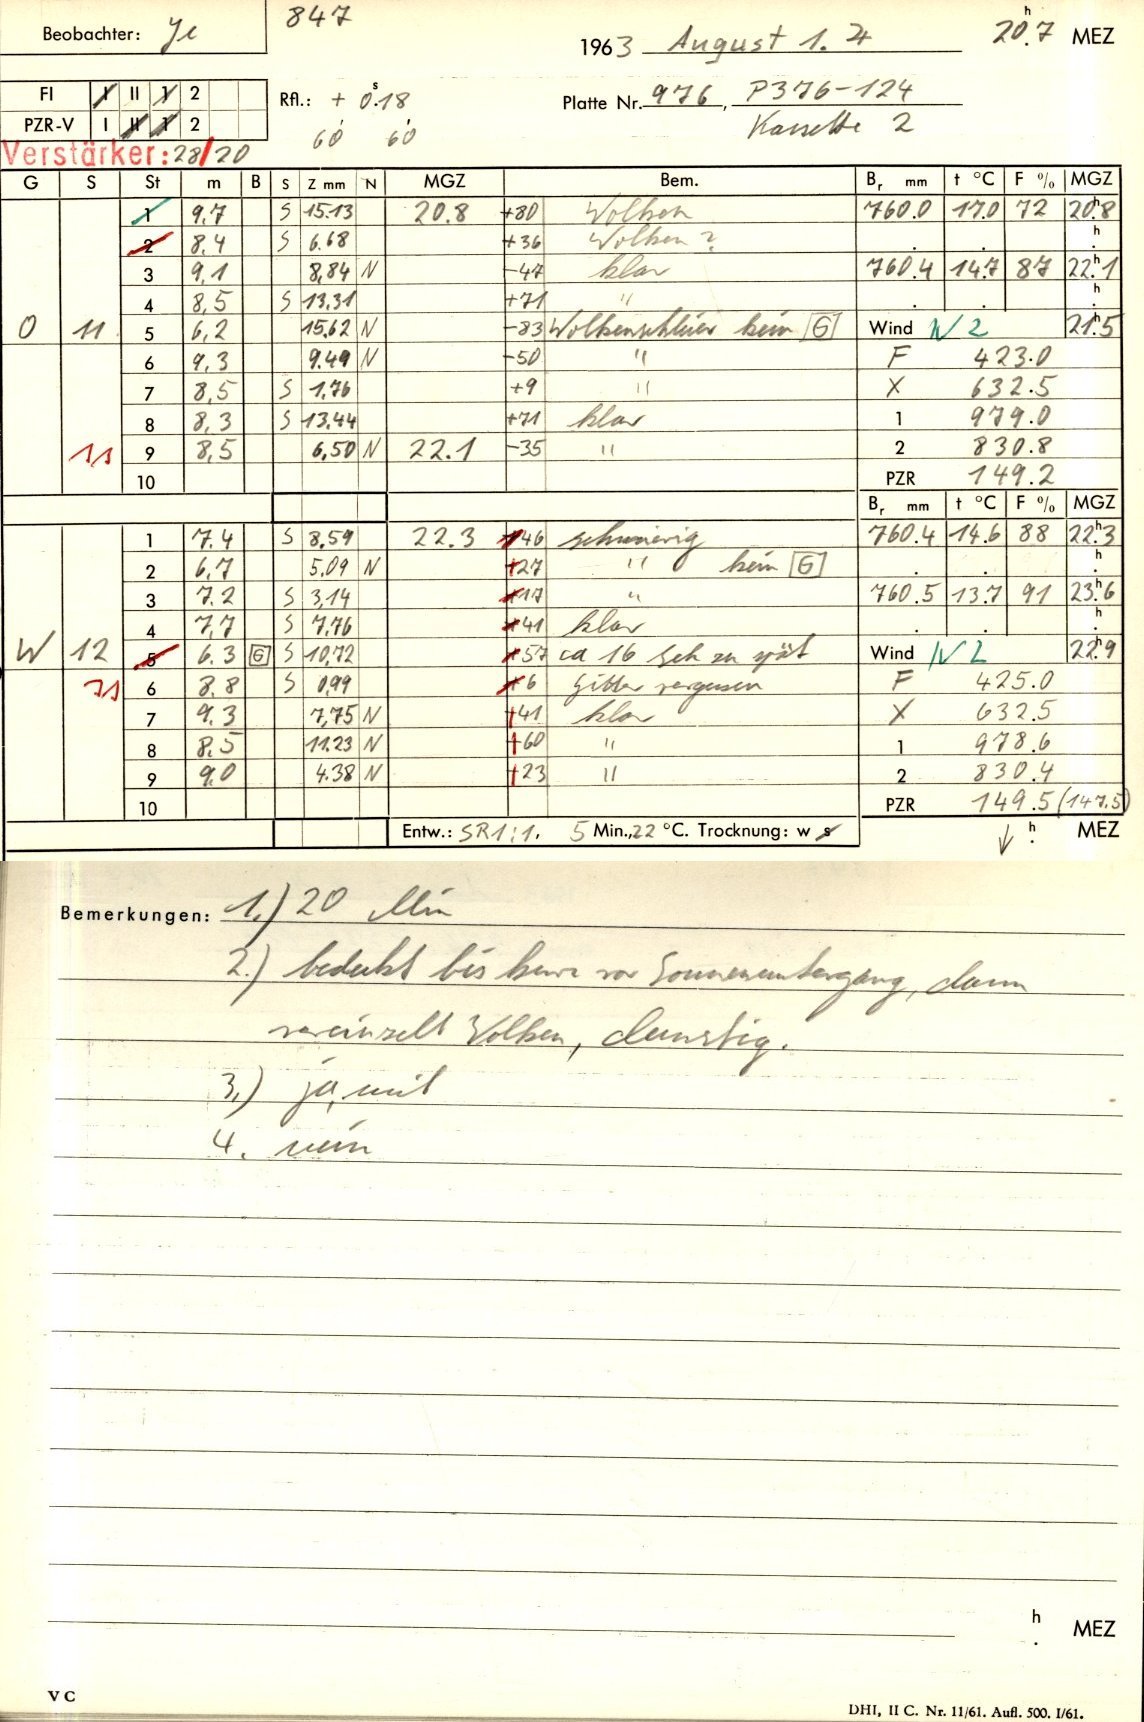 847
Beobachter: Je
1963 August 1. 4 20h.7 MEZ
FI I II 1 2 Rfl.: + 0s.18 Platte Nr. 976, P376-124
PZR-V I II 1 2 60 60 Kassette 2
Verstärker: 28/20
G S St m B S Z mm N MGZ Bem. Br mm t °C F % MGZ
1 9,7 S 15.13 20.8 +80 Wolken 760.0 17.0 72 20h8
2 8.4 S 6.68 +36 Wolken? h.
3 9,1 8,84 N -47 klar 760.4 14.7 87 22h1
4 8,5 S 13,31 +71 " h.
O 11 5 6,2 15.62 N -83 Wolkenschleier kein G Wind W 2 21h5
6 9,3 9.49 N -50 " F 423.0
7 8,5 S 1,76 +9 " X 632.5
8 8,3 S 13,44 +71 klar 1 979.0
11 9 8,5 6,50 N 22.1 -35 " 2 830.8
10 PZR 149.2
Br mm t °C F % MGZ
1 7.4 S 8,59 22.3 +46 schwierig 760.4 14.6 88 22h3
2 6,7 5,09 N +27 " kein G h.
3 7.2 S 3,14 +17 " 760.5 13.7 91 23h6
4 7,7 S 7,76 +41 klar h.
W 12 5 6.3 G S 10,72 +57 ca 16 sek zu spät Wind W 2 22h9
6 8.8 S 0,99 +6 Gitter vergessen F 425.0
7 9.3 7,75 N +41 klar X 632.5
8 8.5 11.23 N +60 " 1 978.6
9 9,0 4.38 N +23 " 2 830.4
10 PZR 149.5 (147.5)
Entw.: SR1:1. 5 Min., 22 °C. Trocknung: w s h. MEZ
Bemerkungen: 1.) 20 Min
2.) bedeckt bis kurz vor Sonnenuntergang, dann
vereinzelt Wolken, dunstig.
3.) ja, mit
4. nein
h. MEZ
V C
DHI, II C. Nr. 11/61. Aufl. 500. I/61.